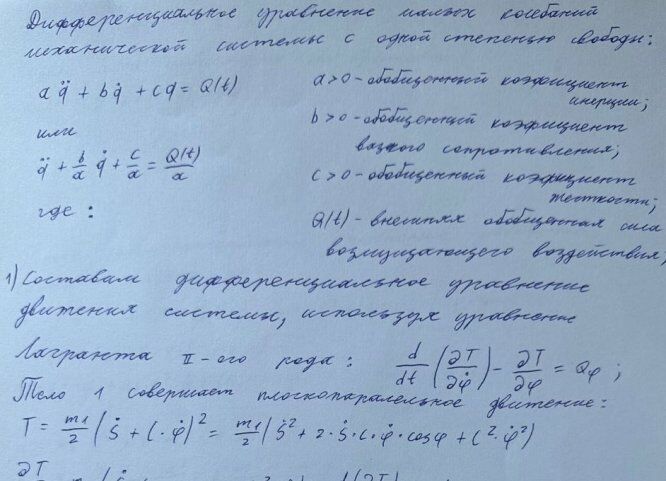 Дифференциальное уравнение малых колебаний
механической системы с одной степенью свободы:
a q̈ + b q̇ + c q = Q(t)
a > 0 - обобщенный коэфициент
инерции;
или
b > 0 - обобщенный коэфициент
вязкого сопротивления;
q̈ + b/a q̇ + c/a = Q(t)/a
c > 0 - обобщенный коэфициент
жесткости;
где:
Q(t) - внешняя обобщенная сила
возмущающего воздействия,
1) Составим дифференциальное уравнение
движения системы, используя уравнение
Лагранжа II-ого рода: d/dt (∂T/∂φ̇) - ∂T/∂φ = Qφ ;
Тело 1 совершает плоскопаралельное движение:
T = m1/2 (Ṡ + l · φ̇)² = m1/2 (Ṡ² + 2 · Ṡ · l · φ̇ · cosφ + l² · φ̇²)
∂T